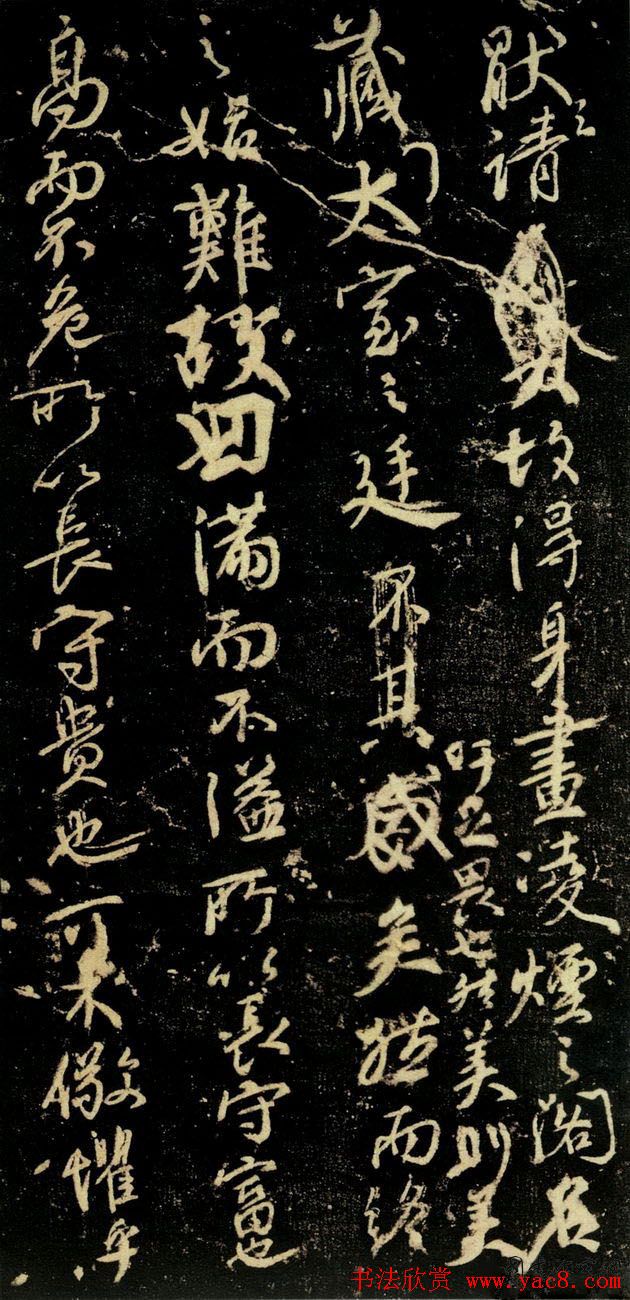 厭之請故得身畫凌煙之閣名
吁足畏也然美則美
藏太室之廷不其盛矣然而終
之始難故曰滿而不溢所以長守富也
高而不危所以長守貴也可不儆懼乎
书法欣赏 www.yac8.com